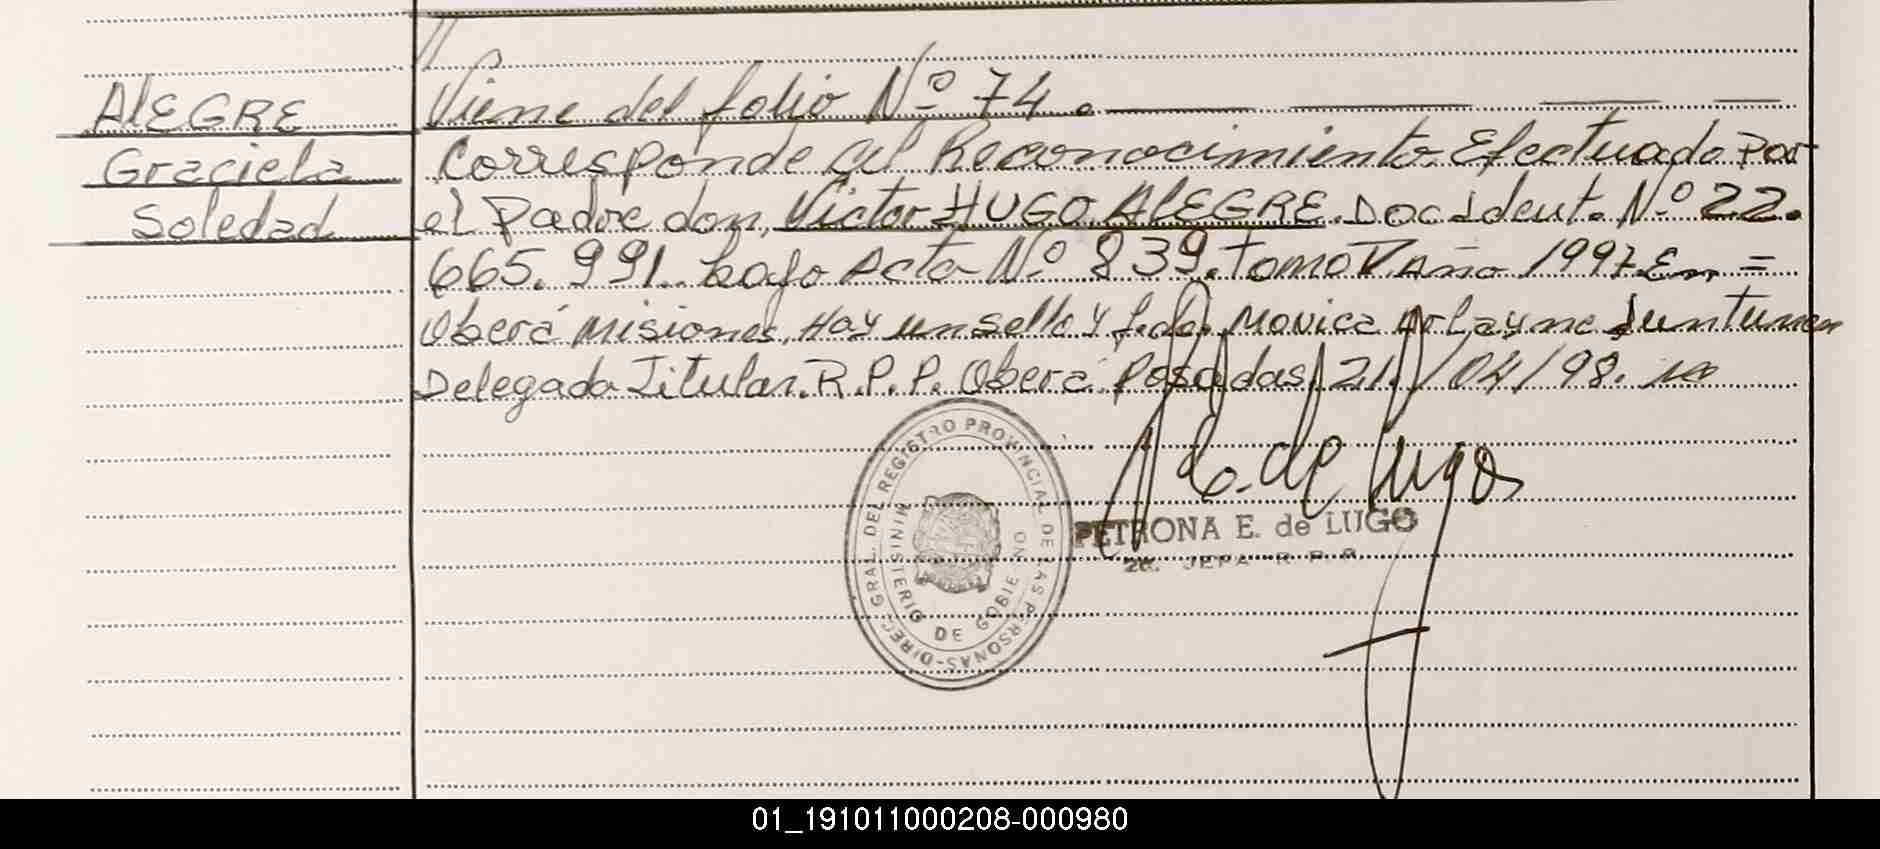 //
ALEGRE
Graciela
Soledad
Viene del folio Nº 74.
Corresponde al Reconocimiento Efectuado Por
el Padre don, Victor HUGO ALEGRE. Doc Ident. Nº 22.
665.991. bajo Acta Nº 839. Tomo V Año 1997. En =
Oberá Misiones, Hay un sello y fdo. Monica
Delegada Titular. R.P.P. Oberá. Posadas, 21/04/98.
de Lugo
PETRONA E. de LUGO
2a. JEFA R. P. P.
DIREC. GRAL. DEL REGISTRO PROVINCIAL DE LAS PERSONAS-
MINISTERIO DE GOBIERNO
01_191011000208-000980